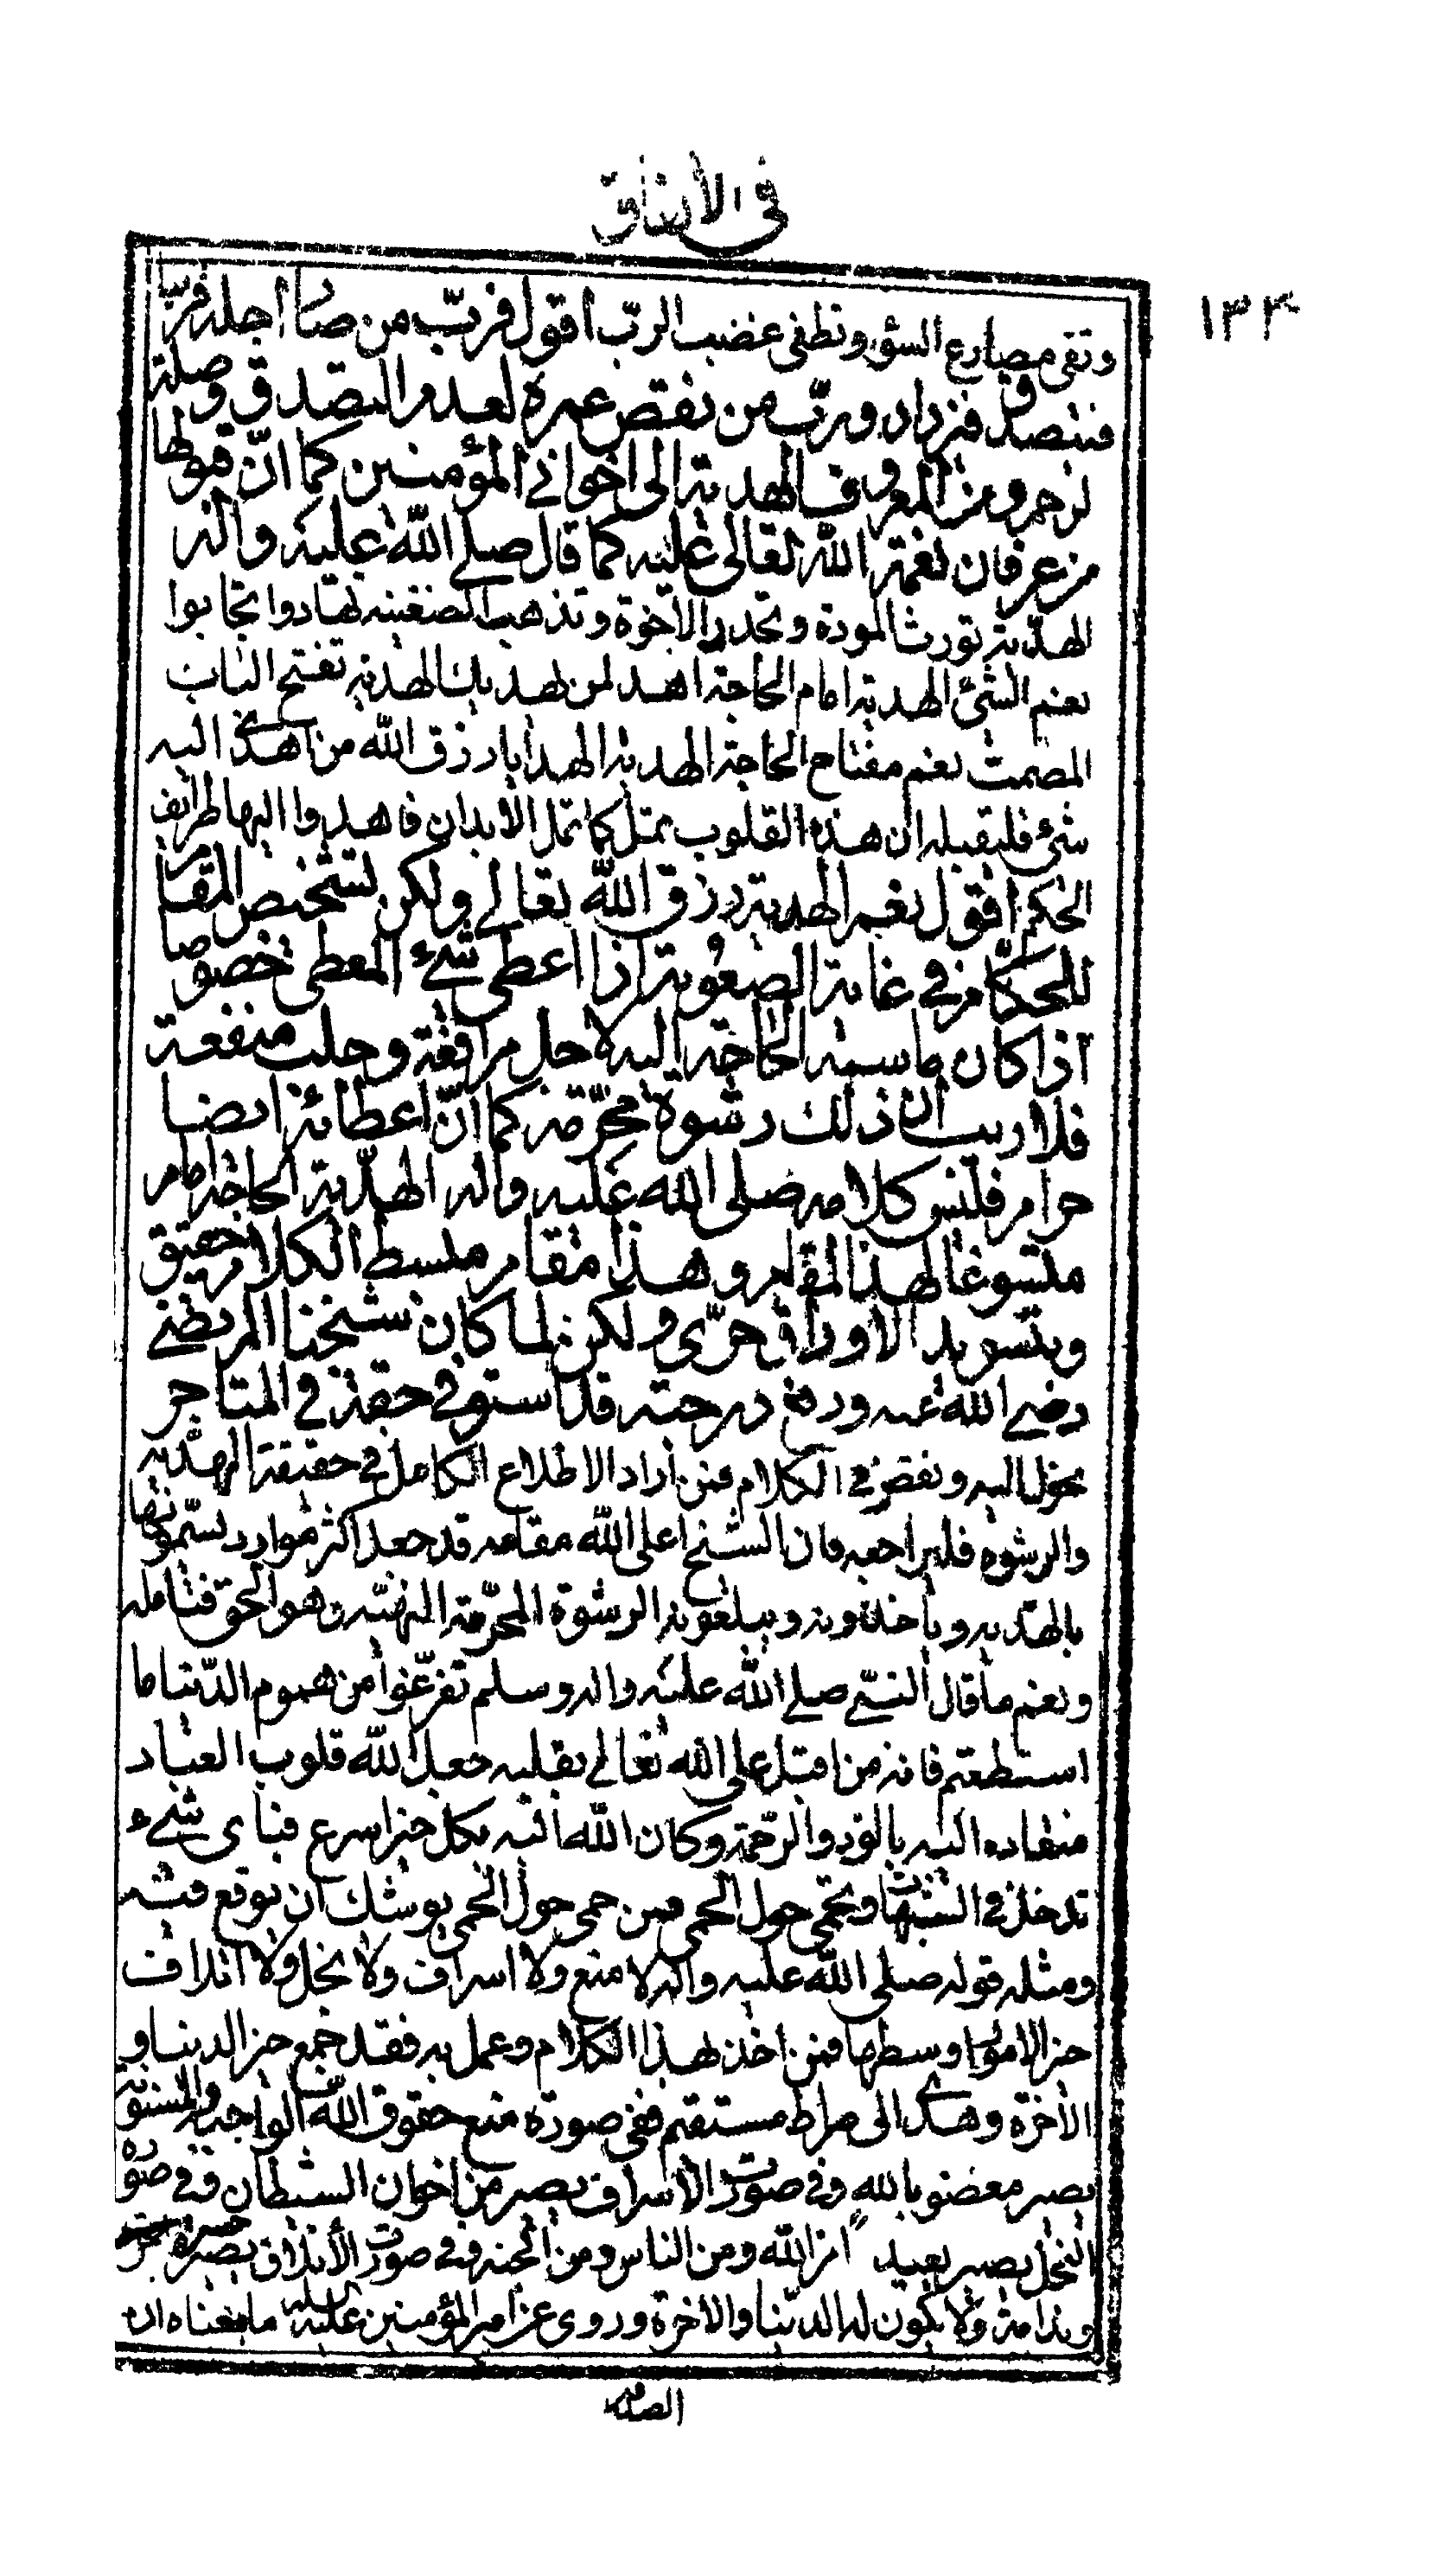 في الأنفاق
١٣٣
وتقى مصارع السؤ وتطفى غضب الربّ اقول فربّ من صار اجله قريبا
فتصدق فيزداد وربّ من نقص عمره لعدم التصدق وصلة
لرحم ومن المعروف الهدية الى اخوانه المؤمنين كما انّ قبولها
من عرفان نعمة الله تعالى عليه كما قال صلى الله عليه واله
الهديّة تورث المودة وتجدد الاخوة وتذهب الضغينه تهادوا تحابوا
نعم الشئ الهدية امام الحاجة اهد لمن يهديك الهدية تفتح الباب
المصمت نعم مفتاح الحاجة الهدية الهدايا رزق الله من اهدى اليه
شئ فليقبله ان هذه القلوب تمل كما تمل الأبدان فاهدوا اليها طرايف
الحكم اقول نعم الهدية رزق الله تعالى ولكن تشخيص المقام
للحكّام في غاية الصعوبة اذا اعطى شئ المعطى خصوصا
اذا كان ماسته الحاجة اليه لاجل مرافعة وجلب منفعة
فلا ريب ان ذلك رشوة محرّمة كما انّ اعطائه ايضا
حرام فليس كلامه صلى الله عليه واله الهديّة الحاجة امام
مسوغا لهذا المقام وهذا مقام ببسط الكلام حقيق
وبتسويد الاوراق حرّى ولكن لما كان شيخنا المرتضى
رضى الله عنه ورفع درجته قد استوفى حقه في المتاجر
نحول اليه ونقصر في الكلام فمن اراد الاطلاع الكامل في حقيقة الهديّة
والرشوه فليراجعه فان الشيخ اعلى الله مقامه قد جعل اكثر موارد يسمّونها
بالهديه وياخذونه ويبلعونه الرشوة المحرّمة المنهيّه وهو الحق فتامله
ونعم ما قال النبيّ صلى الله عليه واله وسلم تفرّغوا من هموم الدّنيا ما
استطعتم فانه من اقبل على الله تعالى بقلبه جعل الله قلوب العباد
منقاده اليه بالود والرّحمة وكان الله اليه بكل خير اسرع فباى شئ
تدخل في الشبهات وتحمى حول الحمى فمن حمى حول الحمى يوشك ان يوقع فيه
ومثله قوله صلى الله عليه واله لا منع ولا اسراف ولا بخل ولا اتلاف
خير الامور اوسطها فمن اخذ بهذا الكلام وعمل به فقد جمع خير الدينا و
الاخرة وهدى الى صراط مستقيم ففى صورة منع حقوق الله الواجبة والمسنونة
يصير مغضوبا لله وفي صورة الأسراف يصير من اخوان الشيطان وفي صورة
البخل يصير بعيدا من الله ومن الناس ومن الجنه وفي صورة الأتلاف يصير في حسرة
وندامة ولا يكون له الدّنيا والاخرة وروى عن امير المؤمنين عليه السلام ما معناه ان
الصلة